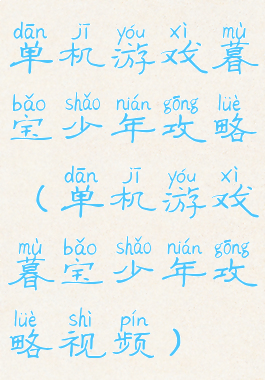 dān jī yóu xì mù
单机游戏暮
bǎo shǎo nián gōng lüè
宝少年攻略
dān jī yóu xì
（单机游戏
mù bǎo shǎo nián gōng
暮宝少年攻
lüè shì pín
略视频）